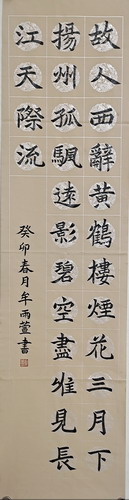 故人西辭黃鶴樓煙花三月下
揚州孤颿遠影碧空盡唯見長
江天際流
癸卯春月牟雨萱書